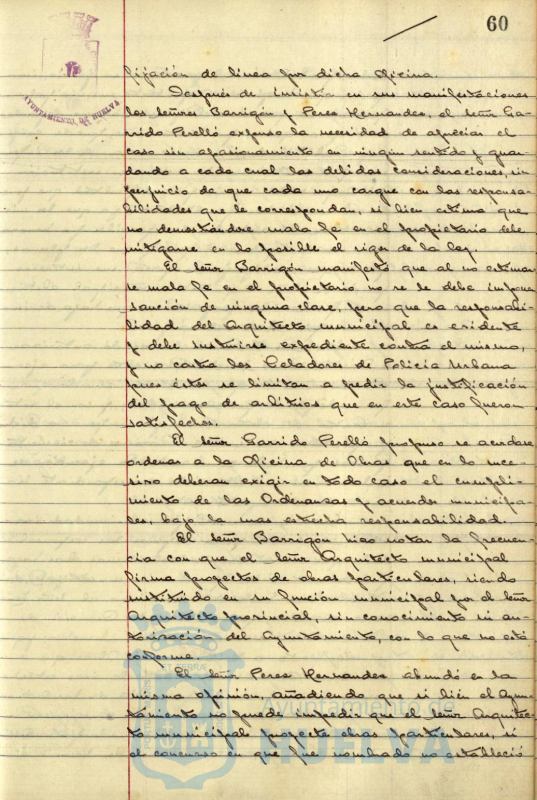 60
AYUNTAMIENTO DE HUELVA
fijación de línea por dicha Oficina.
Después de insistir en sus manifestaciones
los señores Barrigón y Peres Hernandes, el señor Ga-
rrido Perelló expuso la necesidad de apreciar el
caso sin apasionamiento en ningún sentido y guar-
dando a cada cual las debidas consideraciones, sin
perjuicio de que cada uno cargue con las responsa-
bilidades que le correspondan, si bien estima que
no demostrándose mala fe en el propietario debe
mitigarse en lo posible el rigor de la ley.
El señor Barrigón manifestó que al no estimar-
se mala fe en el propietario no se le debe imponer
sanción de ninguna clase, pero que la responsabi-
lidad del Arquitecto municipal es evidente
y debe instruirse expediente contra el mismo,
y no contra los Celadores de Policía Urbana
pues éstos se limitan a pedir la justificación
del pago de arbitrios que en este caso fueron
satisfechos.
El señor Garrido Perelló propuso se acordase
ordenar a la Oficina de Obras que en lo suce-
sivo deberan exigir en todo caso el cumpli-
miento de las Ordenansas y acuerdos municipa-
les, bajo la mas estrecha responsabilidad.
El señor Barrigón hiso notar la frecuen-
cia con que el señor Arquitecto municipal
firma proyectos de obras particulares, siendo
sustituido en su función municipal por el señor
Arquitecto provincial, sin conocimiento ni au-
torisación del Ayuntamiento, con lo que no está
conforme.
El señor Peres Hernandes abundó en la
misma opinión, añadiendo que si bien el Ayun-
tamiento no puede impedir que el señor Arquitec-
to municipal proyecte obras particulares, si
el concurso en que fue nombrado no estableció
Ayuntamiento de
HUELVA